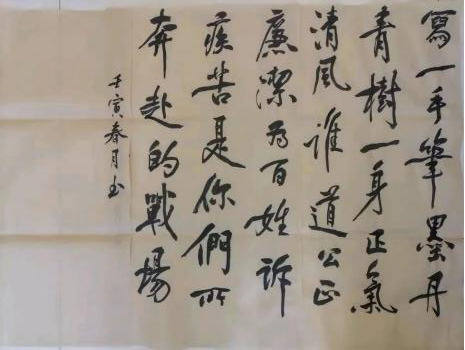 寫一手筆墨丹
青樹一身正氣
清風誰道公正
廉潔為百姓訴
疾苦是你們所
奔赴的戰場
壬寅春月書